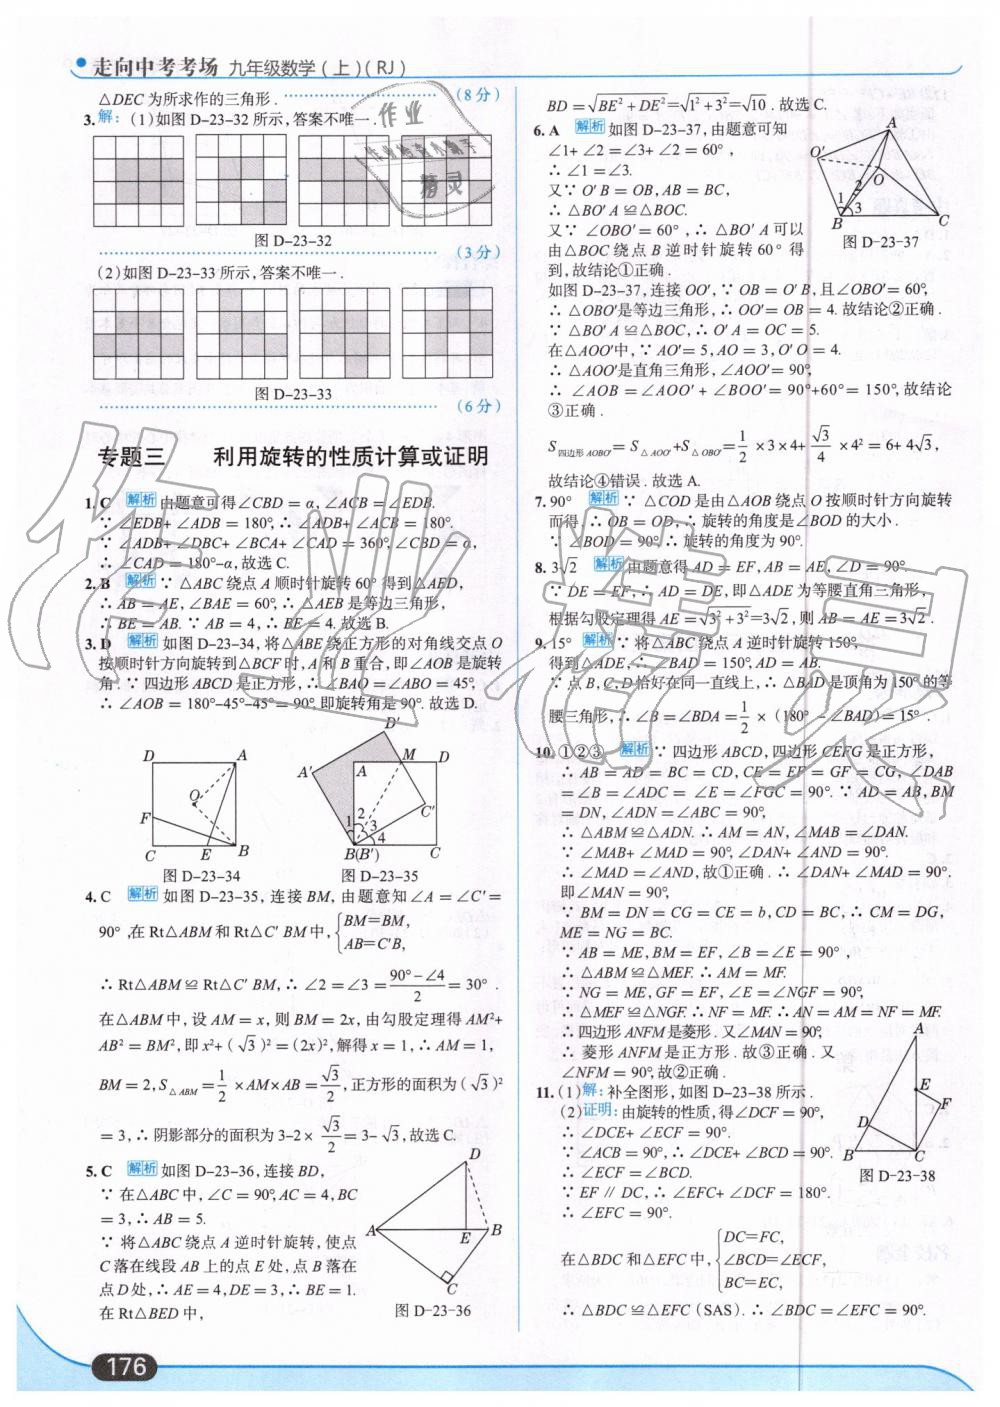 走向中考考场 九年级数学(上)(RJ)
△DEC为所求作的三角形. (8分)
3.解:(1)如图D-23-32所示,答案不唯一.
图D-23-32
(3分)
(2)如图D-23-33所示,答案不唯一.
图D-23-33
(6分)
专题三 利用旋转的性质计算或证明
1.C 解析 由题意可得∠CBD=α,∠ACB=∠EDB.
∵∠EDB+∠ADB=180°,∴∠ADB+∠ACB=180°.
∵∠ADB+∠DBC+∠BCA+∠CAD=360°,∠CBD=α,
∴∠CAD=180°-α,故选C.
2.B 解析 ∵△ABC绕点A顺时针旋转60°得到△AED,
∴AB=AE,∠BAE=60°,∴△AEB是等边三角形,
∴BE=AB.∵AB=4,∴BE=4.故选B.
3.D 解析 如图D-23-34,将△ABE绕正方形的对角线交点O
按顺时针方向旋转到△BCF时,A和B重合,即∠AOB是旋转
角.∵四边形ABCD是正方形,∴∠BAO=∠ABO=45°,
∴∠AOB=180°-45°-45°=90°,即旋转角是90°.故选D.
D A O F C E B
图D-23-34
D' A' A M D C' 1 2 3 4 B(B') C
图D-23-35
4.C 解析 如图D-23-35,连接BM,由题意知∠A=∠C'=
90°,在Rt△ABM和Rt△C'BM中,{BM=BM, AB=C'B,
∴Rt△ABM≌Rt△C'BM,∴∠2=∠3=(90°-∠4)/2=30°.
在△ABM中,设AM=x,则BM=2x,由勾股定理得AM²+
AB²=BM²,即x²+(√3)²=(2x)²,解得x=1,∴AM=1,
BM=2,S△ABM=1/2×AM×AB=√3/2,正方形的面积为(√3)²
=3,∴阴影部分的面积为3-2×√3/2=3-√3,故选C.
5.C 解析 如图D-23-36,连接BD,
∵在△ABC中,∠C=90°,AC=4,BC
=3,∴AB=5.
∵将△ABC绕点A逆时针旋转,使点
C落在线段AB上的点E处,点B落在
点D处,∴AE=4,DE=3,∴BE=1.
在Rt△BED中,
D A E B C
图D-23-36
BD=√(BE²+DE²)=√(1²+3²)=√10.故选C.
6.A 解析 如图D-23-37,由题意可知
∠1+∠2=∠3+∠2=60°,
∴∠1=∠3.
又∵O'B=OB,AB=BC,
∴△BO'A≌△BOC.
又∵∠OBO'=60°,∴△BO'A可以
由△BOC绕点B逆时针旋转60°得
到,故结论①正确.
A O' O 2 1 3 B C
图D-23-37
如图D-23-37,连接OO',∵OB=O'B,且∠OBO'=60°,
∴△OBO'是等边三角形,∴OO'=OB=4.故结论②正确.
∵△BO'A≌△BOC,∴O'A=OC=5.
在△AOO'中,∵AO'=5,AO=3,O'O=4.
∴△AOO'是直角三角形,∠AOO'=90°,
∴∠AOB=∠AOO'+∠BOO'=90°+60°=150°,故结论
③正确.
S四边形AOBO'=S△AOO'+S△OBO'=1/2×3×4+√3/4×4²=6+4√3,
故结论④错误.故选A.
7.90° 解析 ∵△COD是由△AOB绕点O按顺时针方向旋转
而得,∴OB=OD,∴旋转的角度是∠BOD的大小.
∵∠BOD=90°,∴旋转的角度为90°.
8.3√2 解析 由题意得AD=EF,AB=AE,∠D=90°.
∵DE=EF,∴AD=DE,即△ADE为等腰直角三角形,
根据勾股定理得AE=√(3²+3²)=3√2,则AB=AE=3√2.
9.15° 解析 ∵将△ABC绕点A逆时针旋转150°,
得到△ADE,∴∠BAD=150°,AD=AB.
∵点B,C,D恰好在同一直线上,∴△BAD是顶角为150°的等
腰三角形,∴∠B=∠BDA=1/2×(180°-∠BAD)=15°.
10.①②③ 解析 ∵四边形ABCD,四边形CEFG是正方形,
∴AB=AD=BC=CD,CE=EF=GF=CG,∠DAB
=∠B=∠ADC=∠E=∠FGC=90°.∵AD=AB,BM
=DN,∠ADN=∠ABC=90°,
∴△ABM≌△ADN.∴AM=AN,∠MAB=∠DAN.
∵∠MAB+∠MAD=90°,∠DAN+∠AND=90°.
∴∠MAD=∠AND,故①正确.∴∠DAN+∠MAD=90°.
即∠MAN=90°,
∵BM=DN=CG=CE=b,CD=BC,∴CM=DG,
ME=NG=BC.
∵AB=ME,BM=EF,∠B=∠E=90°,
∴△ABM≌△MEF.∴AM=MF.
∵NG=ME,GF=EF,∠E=∠NGF=90°,
∴△MEF≌△NGF.∴NF=MF.∴AN=AM=NF=MF.
∴四边形ANFM是菱形.又∠MAN=90°,
∴菱形ANFM是正方形.故③正确.又
∠NFM=90°,故②正确.
11.(1)解:补全图形,如图D-23-38所示.
(2)证明:由旋转的性质,得∠DCF=90°,
∴∠DCE+∠ECF=90°.
∵∠ACB=90°,∴∠DCE+∠BCD=90°.
∴∠ECF=∠BCD.
∵EF∥DC,∴∠EFC+∠DCF=180°.
∴∠EFC=90°.
A E F D B C
图D-23-38
在△BDC和△EFC中,{DC=FC, ∠BCD=∠ECF, BC=EC,
∴△BDC≌△EFC(SAS).∴∠BDC=∠EFC=90°.
176
作业精灵